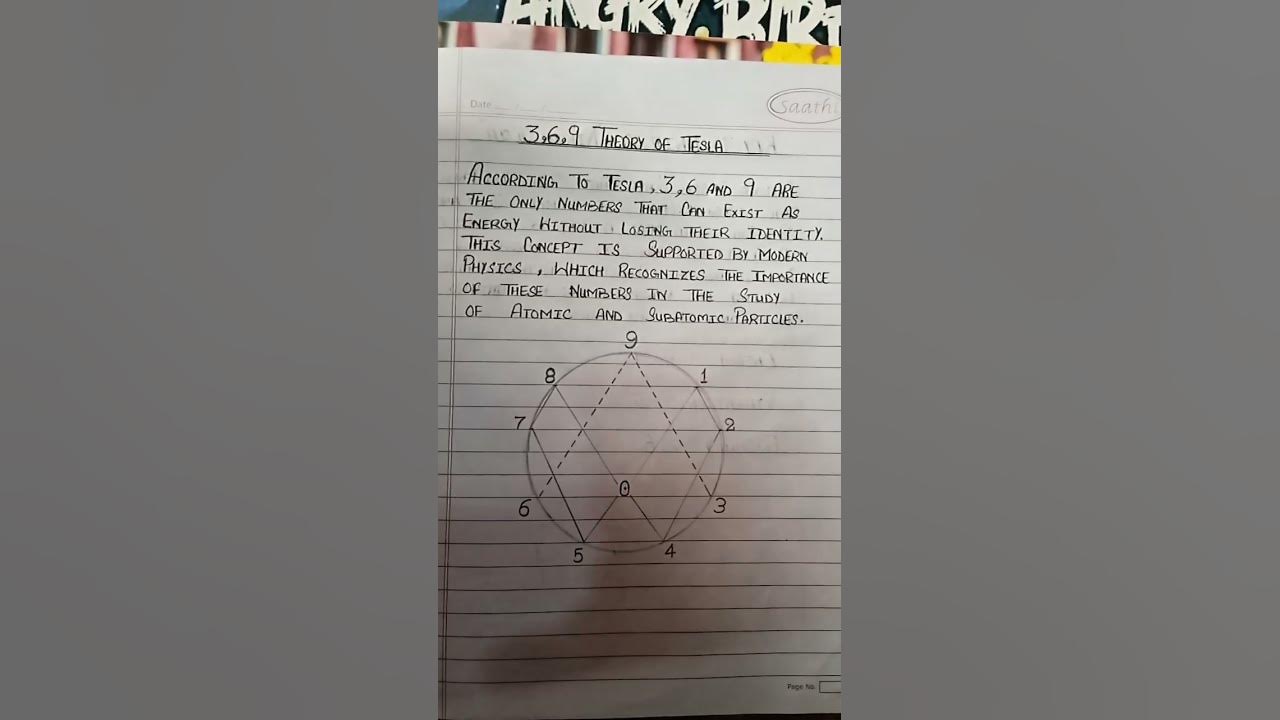 ANGRY BIR
Date
saathi
3,6,9 THEORY OF TESLA
ACCORDING TO TESLA, 3,6 AND 9 ARE
THE ONLY NUMBERS THAT CAN EXIST AS
ENERGY WITHOUT LOSING THEIR IDENTITY.
THIS CONCEPT IS SUPPORTED BY MODERN
PHYSICS, WHICH RECOGNIZES THE IMPORTANCE
OF THESE NUMBERS IN THE STUDY
OF ATOMIC AND SUBATOMIC PARTICLES.
9
8 1
7 2
0
6 3
5 4
Page No.